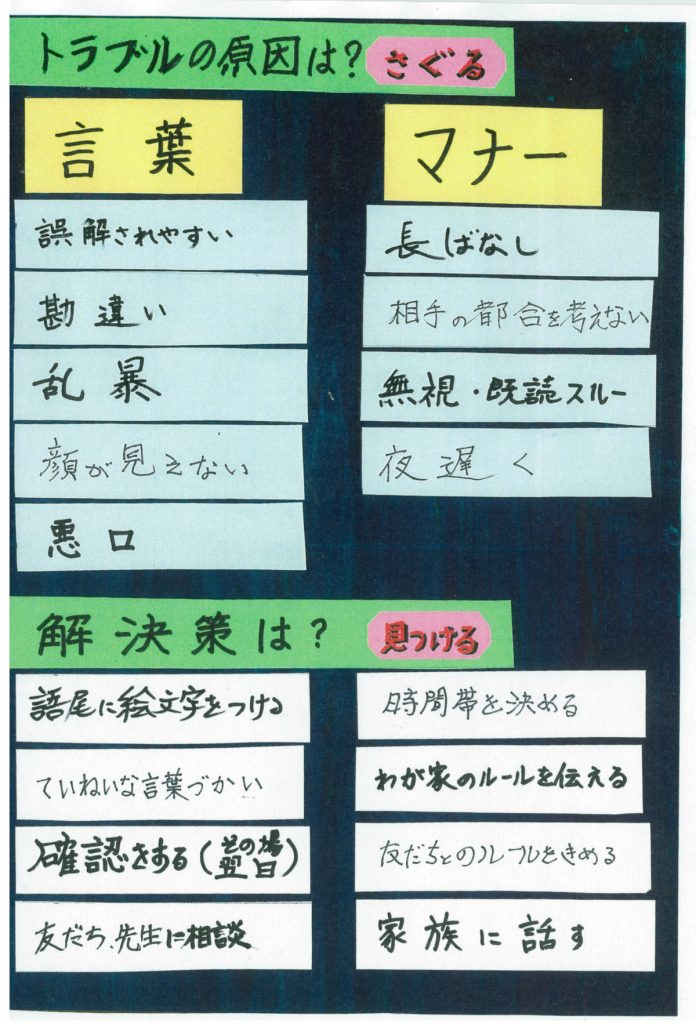 トラブルの原因は? さぐる
言葉
誤解されやすい
勘違い
乱暴
顔が見えない
悪口
マナー
長ばなし
相手の都合を考えない
無視・既読スルー
夜遅く
解決策は? 見つける
語尾に絵文字をつける
ていねいな言葉づかい
確認をする(その場 翌日)
友だち、先生に相談
時間帯を決める
わが家のルールを伝える
友だちとのルールをきめる
家族に話す